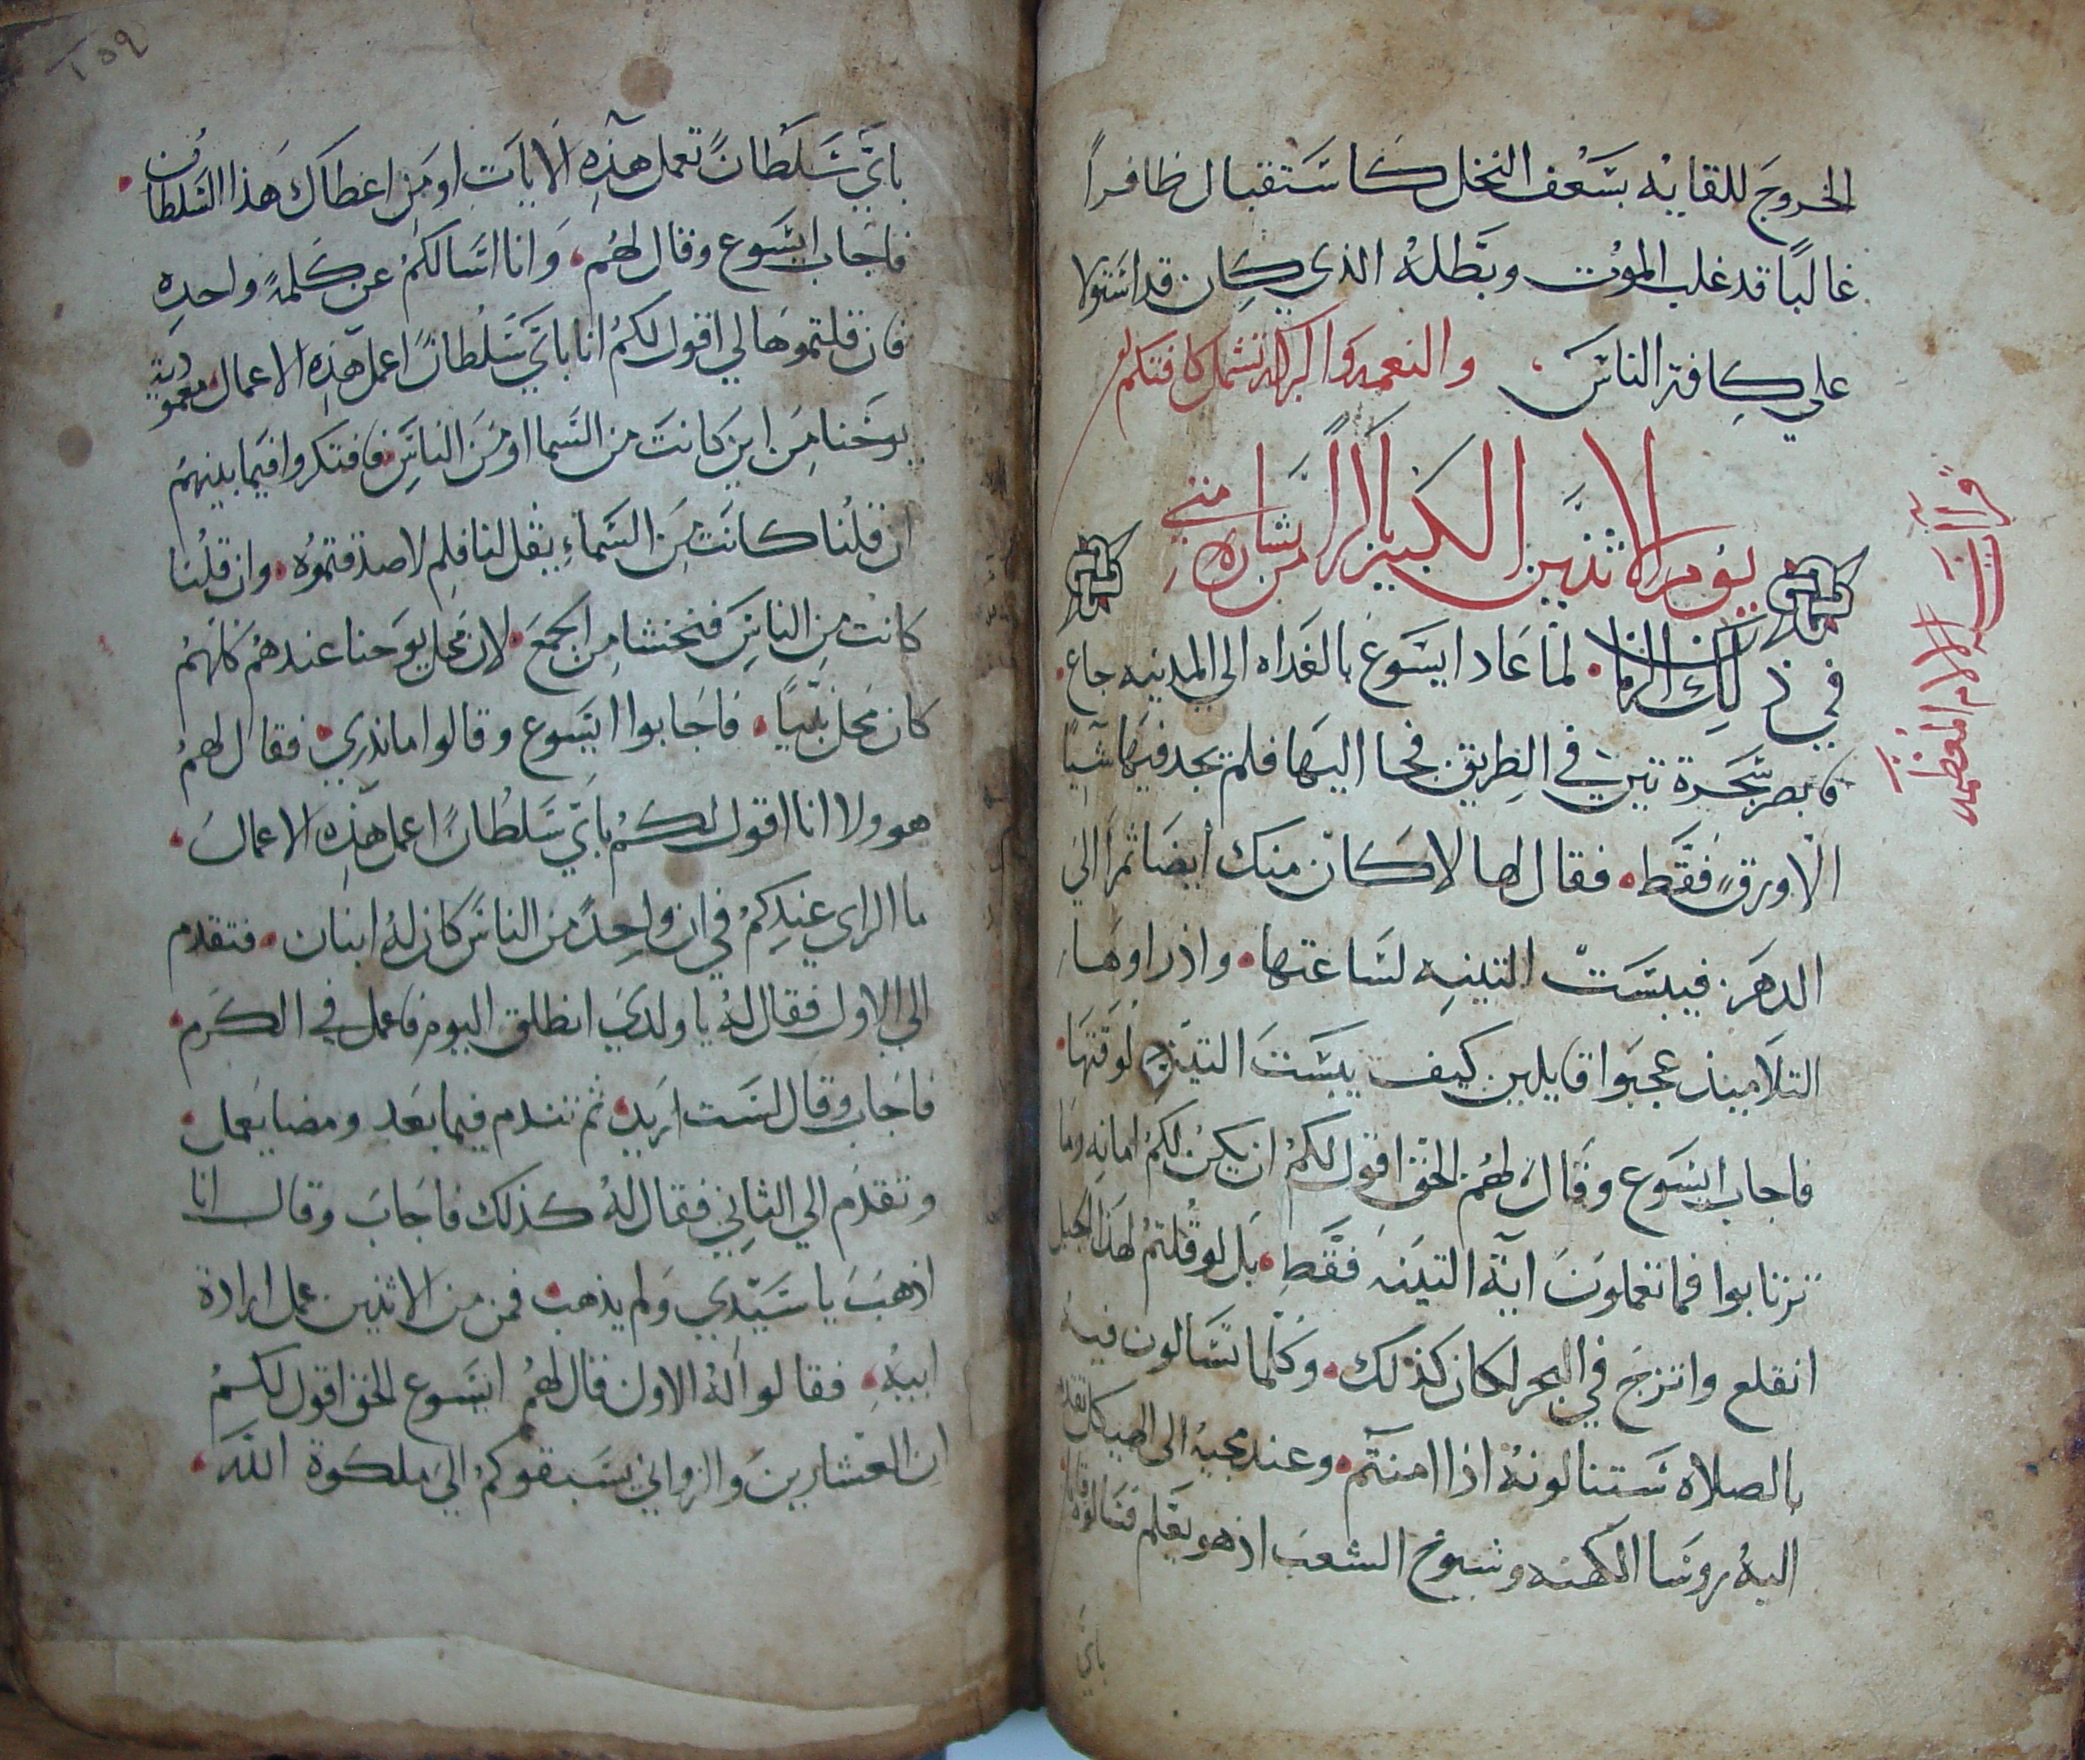 الخروجَ للقايهُ بسَعْف النخل كاسْتقبال ظافراً
غالبًا قد غلب الموت وبَطَلهُ الذي كان قد استولا
علي كافة الناس والنعمه والبركه تشمل كافتكم
قراات الالام المعظمه
يوم الاثنين الكبير باكراً من بشارة متي
في ذلك الزمان لمّا عَاد ايسَوعَ بالغَداه الي المدينه جاع
فابصر شَجَرة تين في الطريق فجا اليهَا فلم يجد فيهَا شيًا
الّا ورقٍ فقَّط فقال لها لا كان منك أيضَا ثمرَ الي
الدهرَ فيبسَتْ التينهِ لسَاعتها واذ راوهَا
التلاميذ عجبَوا قايلين كيف يبسَت التينه لوقتهَا
فاجاب ايسَوع وقال لهُم الحق اقول لكمُ ان يكن لكمُ امانه وما
ترتابوا فما تعملونَ ايَة التينه فقَّطِ بل لو قلتمُ لهَذا الجبل
انقلع وانزجَ في البحر لكان كذلك وكلما تسَالون فيه
بالصلاه سَتنالونهُ اذا امنتمَ وعند مجيهُ الي الهيكل تقدم
اليهُ روسَا الكهنه وشيوخ الشعب اذ هو يعَلم فسَالوه قايلين
باي
٢٥٩
بايّ سَلطَانً تعمل هذهِ الايات او مَن اعطاك هَذا السَّلطان
فاجَاب ايسَوع وقال لهُم وَانا اسَالكمُ عن كلمةٍ واحدهِ
فان قلتموهَا لي اقول لكمُ انا بايّ سَلطانً اعمل هذِه الاعمال معمودية
يوحَنا مِن اين كانتَ من السَما او مَن الناسَ فافتكروا فيما بينهمُ
ان قلنا كانَت مِن السَماءِ يقل لنا فلِم لا صدقتموُه وان قلنُا
كانتْ مِن الناسِ فنخشا مِن الجمعَ لان محل يوَحنا عندهمُ كانهمُ
كان محل نبيًا فاجَابوا ايسَوع وقالوا ما ندري فقال لهمُ
هو ولا انا اقول لكمُ بايّ سَلطانً اعمل هذهِ الاعمال
ما الراي عنِدكمُ في ان واحِدً من الناسَ كان لهُ ابنان فتقدم
الي الاول فقال لهُ يا ولدَي انطلق اليوم فاعمل في الكرم
فاجَاب وقال لسَت اريد ثم تندم فيما بعَد ومضا يعَمل
وتقدم الي الثاني فقال لهُ كذلك فاجَابَ وقال انا
اذهبَ يا سَيّدي وَلم يذهب فمن من الاثنين عمل ارادة
ابيهُ فقالوا لهُ الاول قال لهُم ايسَوع الحق اقول لكمُ
ان العشارينَ والزواني يسَبقوكمُ اليَ ملكوة الله